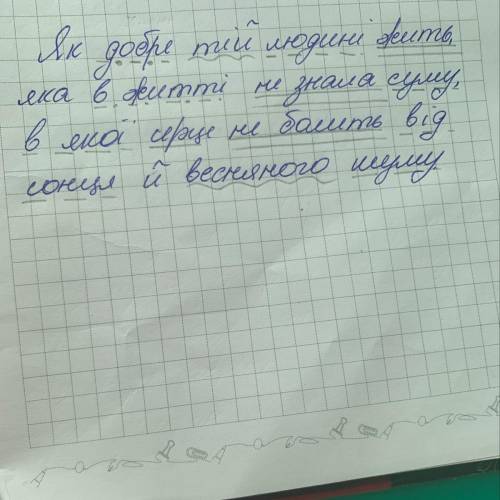 Як добре тій людині жить,
яка в житті не знала суму,
в якої серце не болить від
сонця й весняного шуму.